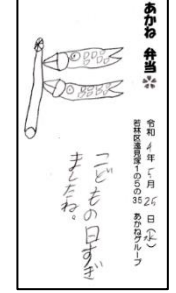 あかね 弁当
令和4年5月25日(水)
若林区遠見塚1の5の35 あかねグループ
こどもの日すぎ
ましたね。